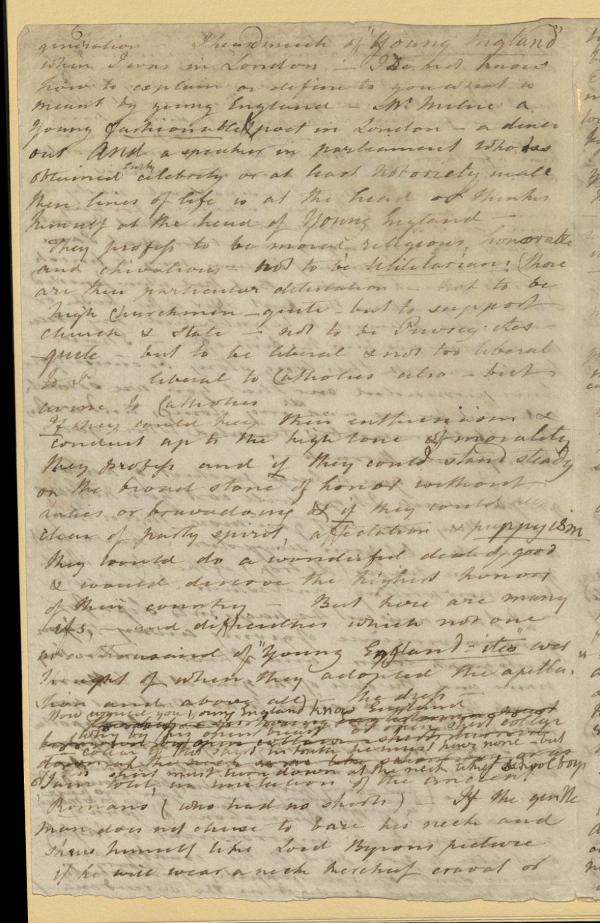 generation — I heard much of "Young England"
when I was in London — I do not know
how to explain or define to you what is
meant by young England — Mr. Milne a
Young fashionable poet in London — a diner
out and a speaker in parliament who has
obtained celebrity or at least notoriety in all
these lines of life is at the head or thinks
himself at the head of Young England —
They profess to be moral, religious, honorable
and chivalrous — not to be Utilitarians (those
are their particular detestation — not to be
high Churchmen — quite — but to support
Church & State — not to be Puseyites —
quite — but to be liberal & not too liberal
liberal to Catholics also — but
Catholics
If they could keep their enthusiasm &
conduct up to the high tone of morality
they profess and if they could stand steady
on the broad stone of honor without
or bravadoing & if they could
clear of party spirit, affectation & puppyism
they would do a wonderful deal of good
& would deserve the highest honors
of their country — But here are many
ifs, — and difficulties which not one
in a thousand of "Young England-ites" ever
thought of when they adopted the appella-
tion and above all — the dress —
How would you young England know England
Why by his open breast & shirt collar
collar of the shirt in truth he must have none — but
his shirt must turn down at the neck like school boys
I am told, in imitation of the ancient
Romans (who had no shirts) — If the gentle
man does not chuse to bare his neck and
shew himself like Lord Byron's picture
if he will wear a neck kerchief cravat or